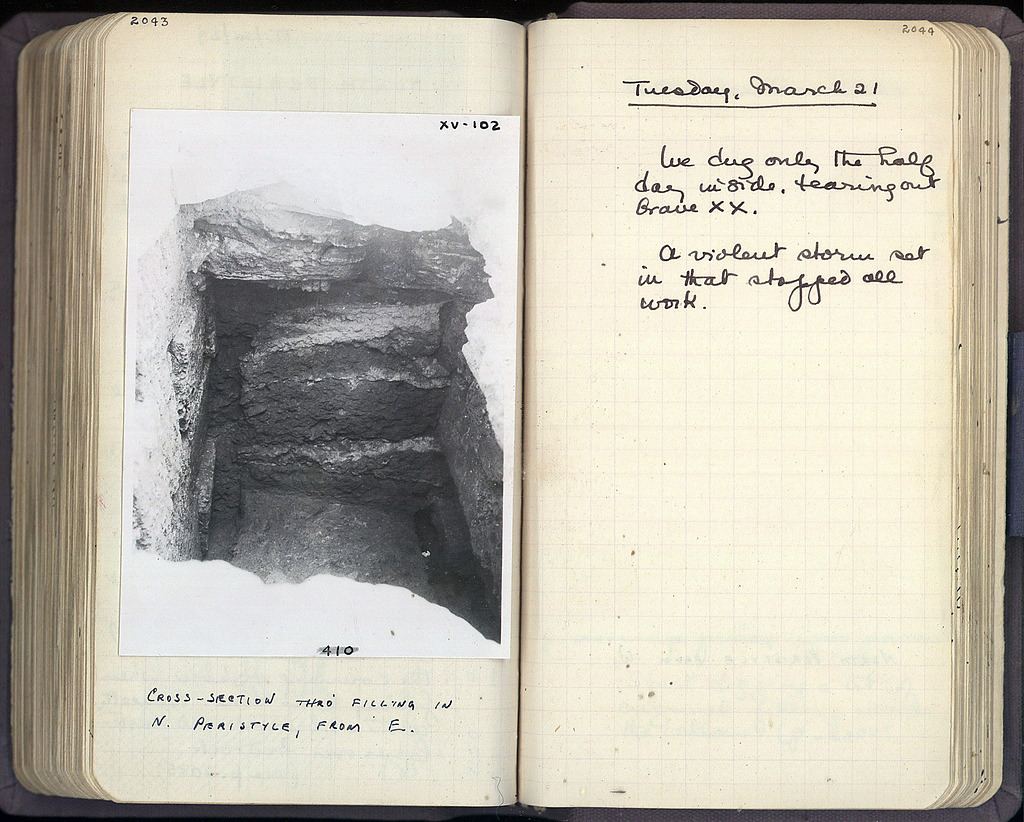 2043
XV-102
410
CROSS-SECTION THRO' FILLING IN
N. PERISTYLE, FROM E.
2044
Tuesday, March 21
We dug only the half
day inside, tearing out
Grave XX.
A violent storm set
in that stopped all
work.